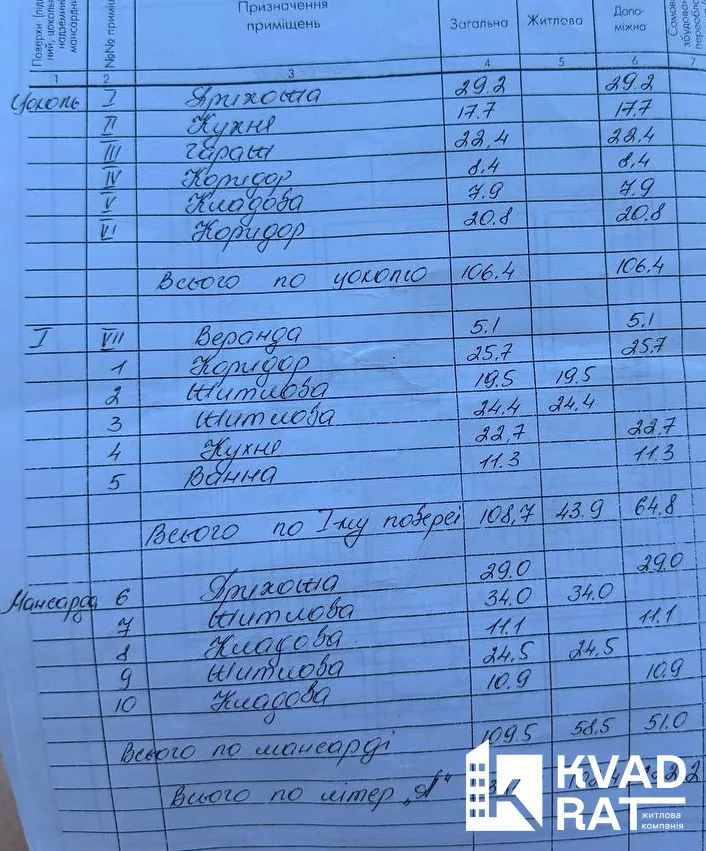 Поверхи (підвал
ний, цокольн
надземний
мансардни
№№ приміщ
Призначення
приміщень
Загальна
Житлова
Допо-
міжна
Самові
збудован
переобл
1 2 3 4 5 6 7
Цоколь I Прихожа 29.2 29.2
II Кухня 17.7 17.7
III Гараж 22,4 22.4
IV Коридор 8,4 8,4
V Кладова 7.9 7.9
VI Коридор 20,8 20,8
Всього по цоколю 106.4 106.4
I VII Веранда 5.1 5.1
1 Коридор 25,7 25.7
2 Житлова 19.5 19.5
3 Житлова 24.4 24.4
4 Кухня 22,7 22.7
5 Ванна 11.3 11.3
Всього по I-му поверсі 108,7 43.9 64.8
29.0
Мансарда 6 Прихожа 29.0
7 Житлова 34.0 34.0
8 Кладова 11.1 11.1
9 Житлова 24,5 24,5
10 Кладова 10.9 10.9
Всього по мансарді 109.5 58.5 51.0
Всього по літер „А“
KVAD
RAT
житлова
компанія